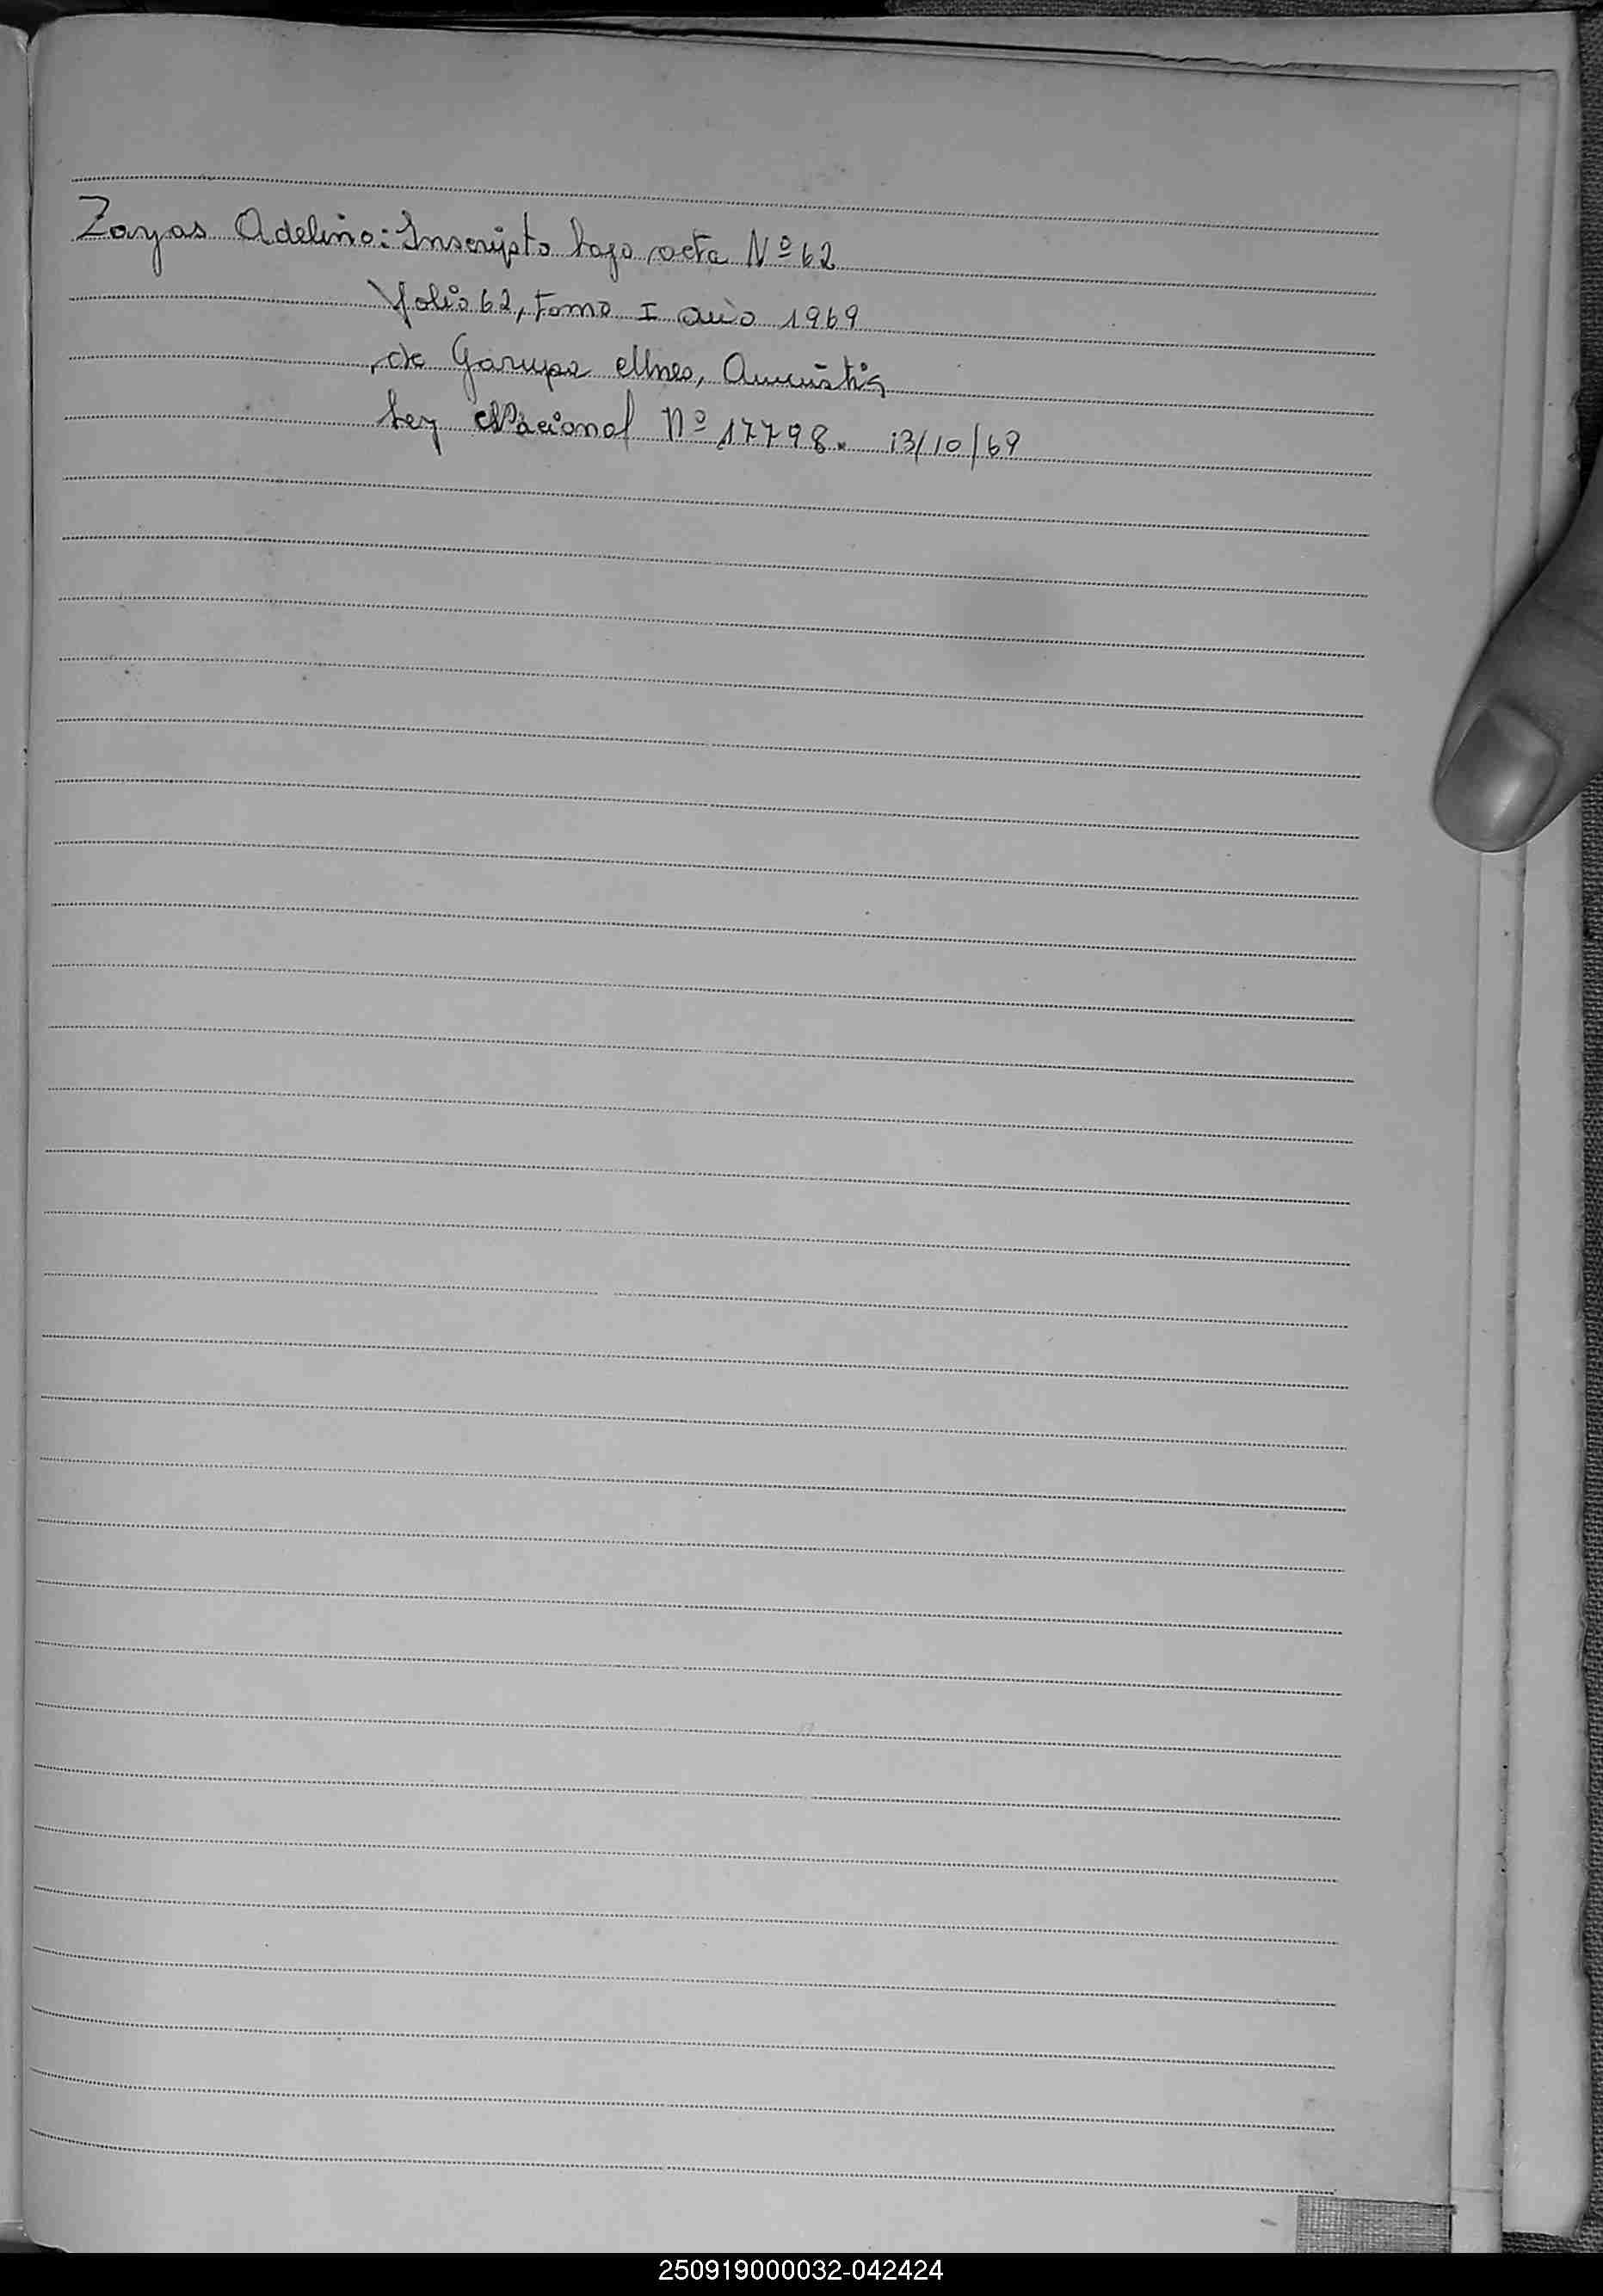 Zayas Adelino: Inscripto bajo acta Nº 62
folio 62, tomo I año 1969
de Garupa Mnes, Amnistia
Ley Nacional Nº 17798. 13/10/69
250919000032-042424